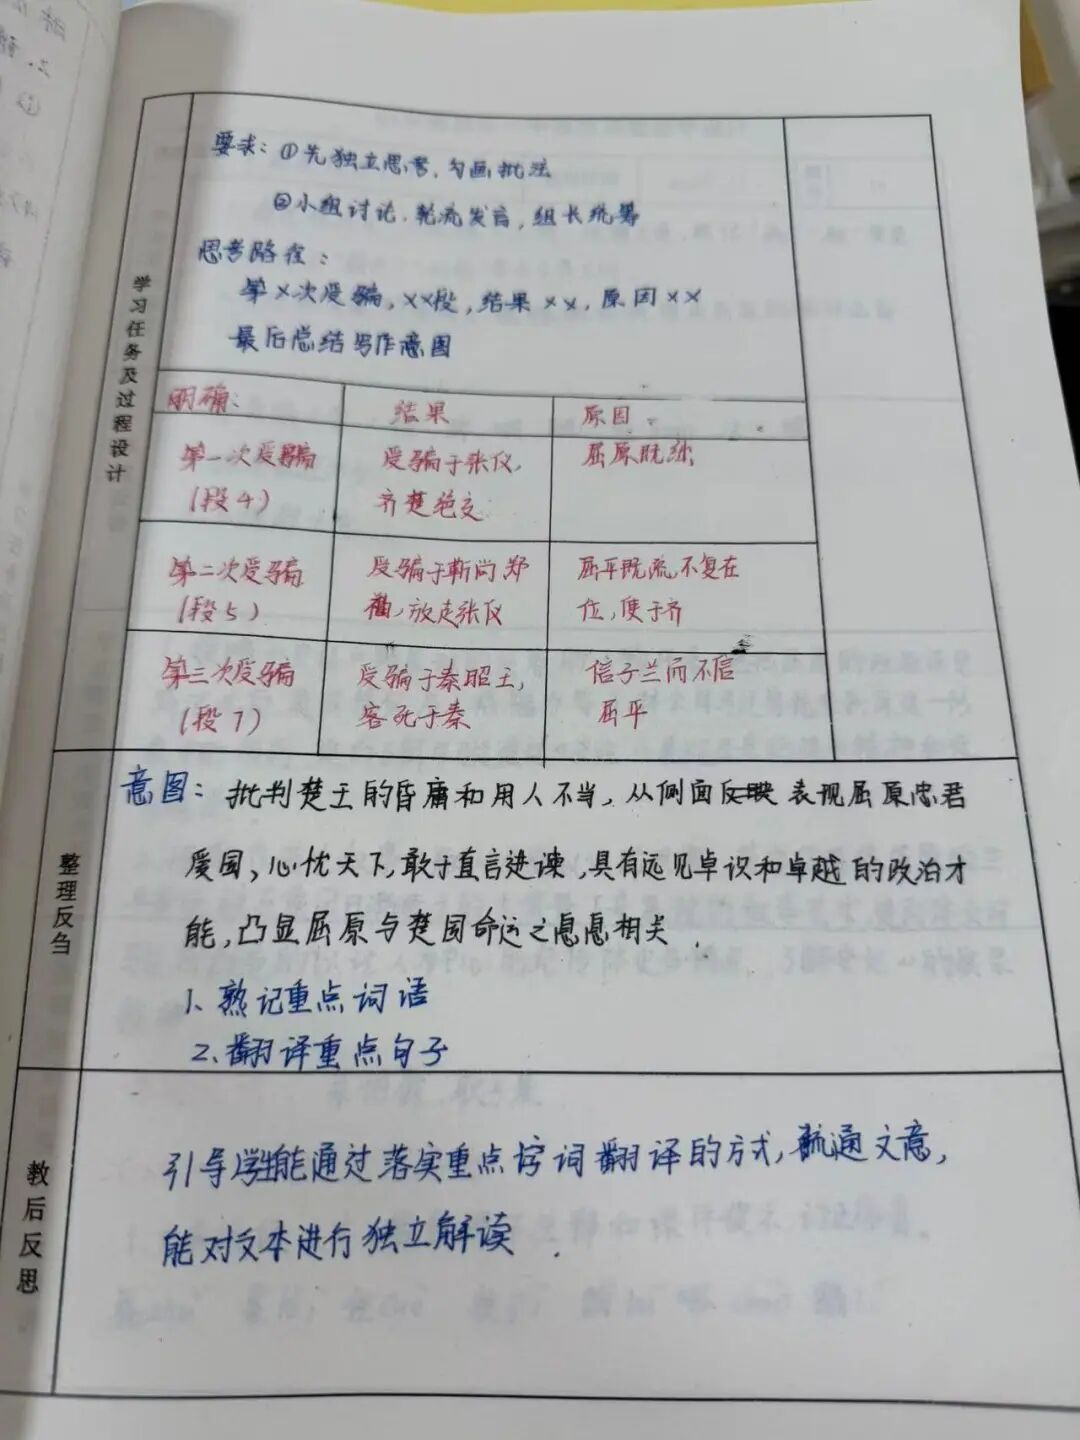 学习任务及过程设计
要求：①先独立思考，勾画批注
②小组讨论，轮流发言，组长统筹
思考路径：
第×次受骗，××段，结果××，原因××
最后总结写作意图
明确： 结果 原因
第一次受骗 受骗于张仪， 屈原既绌
(段4) 齐楚绝交
第二次受骗 受骗于靳尚郑 屈平既疏，不复在
(段5) 袖，放走张仪 位，使于齐
第三次受骗 受骗于秦昭王， 信子兰而不信
(段7) 客死于秦 屈平
整理反刍
意图：批判楚王的昏庸和用人不当，从侧面反映表现屈原忠君
爱国，心忧天下，敢于直言进谏，具有远见卓识和卓越的政治才
能，凸显屈原与楚国命运之息息相关.
1、熟记重点词语
2、翻译重点句子
教后反思
引导学生能通过落实重点字词翻译的方式，疏通文意，
能对文本进行独立解读.